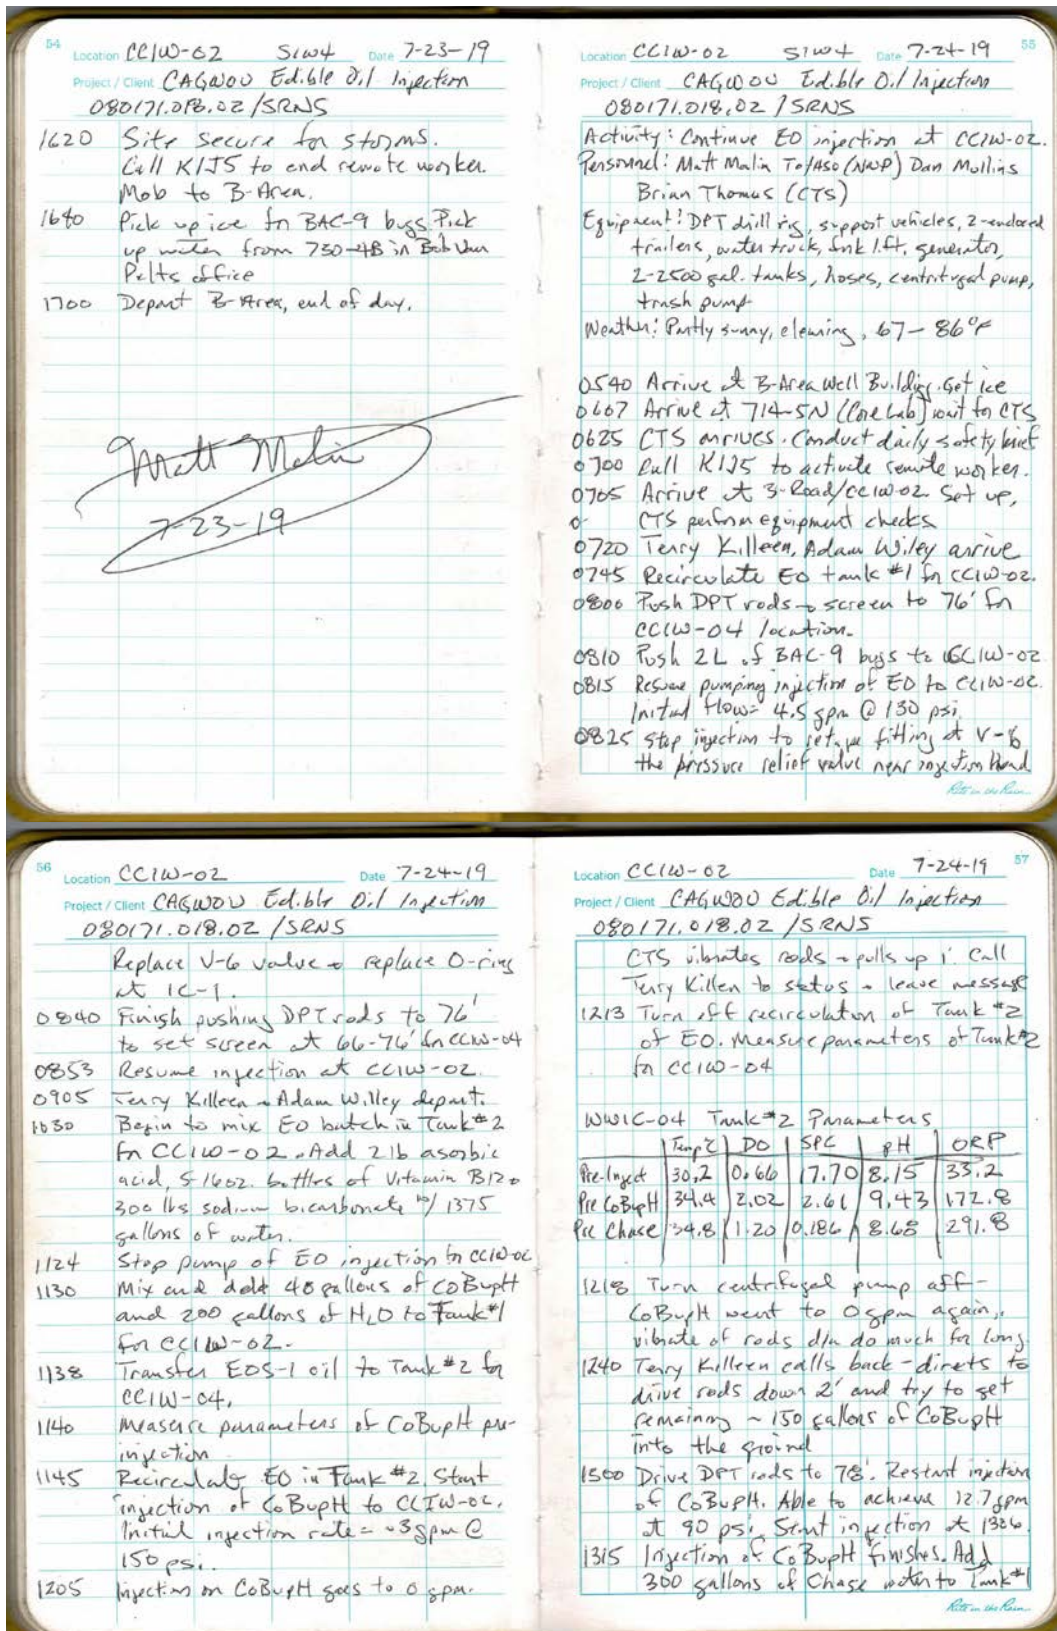 54
Location CCIW-02 SIW4 Date 7-23-19
Project / Client CAGWOU Edible Oil Injection
080171.018.02/SRNS
1620 Site secure for storms.
Call KIJ5 to end remote worker.
Mob to B-Area.
1640 Pick up ice for BAC-9 bugs. Pick
up water from 730-4B in Bob Van
Pelts office
1700 Depart B-Area, end of day.
Matt Malin
7-23-19
55
Location CCIW-02 SIW4 Date 7-24-19
Project / Client CAGWOU Edible Oil Injection
080171.018.02/SRNS
Activity: Continue EO injection at CCIW-02.
Personnel: Matt Malin TO/ASO (NWP) Dan Mullins
Brian Thomas (CTS)
Equipment: DPT drill rig, support vehicles, 2-enclosed
trailers, water truck, fork lift, generator,
2-2500 gal. tanks, hoses, centrifugal pump,
trash pump
Weather: Partly sunny, clearing, 67-86°F
0540 Arrive at B-Area Well Building. Get ice
0607 Arrive at 714-5N (Core Lab) wait for CTS
0625 CTS arrives. Conduct daily safety brief
0700 Call KIJ5 to activate remote worker.
0705 Arrive at 3-Road/CCIW-02. Set up,
CTS perform equipment checks
0720 Terry Killeen, Adam Wiley arrive
0745 Recirculate EO tank #1 for CCIW-02.
0800 Push DPT rods → screen to 76' for
CCIW-04 location.
0810 Push 2L of BAC-9 bugs to CCIW-02
0815 Resume pumping injection of EO to CCIW-02.
Initial flow = 4.5 gpm @ 130 psi.
0825 Stop injection to retape fitting at V-6
the pressure relief valve near injection head
Rite in the Rain
56
Location CCIW-02 Date 7-24-19
Project / Client CAGWOU Edible Oil Injection
080171.018.02/SRNS
Replace V-6 valve + replace O-ring
at IC-1.
0840 Finish pushing DPT rods to 76'
to set screen at 66-76' for CCIW-04
0853 Resume injection at CCIW-02.
0905 Terry Killeen + Adam Willey depart.
1030 Begin to mix EO batch in Tank #2
for CCIW-02. Add 2 lb asorbic
acid, 5-16oz. bottles of Vitamin B12 +
300 lbs sodium bicarbonate w/ 1375
gallons of water.
1124 Stop pump of EO injection to CCIW-02
1130 Mix and add 48 gallons of CoBupH
and 200 gallons of H2O to Tank #1
for CCIW-02.
1138 Transfer EOS-1 oil to Tank #2 for
CCIW-04.
1140 Measure parameters of CoBupH pre-
injection
1145 Recirculate EO in Tank #2. Start
injection of CoBupH to CCIW-02.
Initial injection rate = ~3 gpm @
150 psi.
1205 Injection on CoBupH goes to 0 gpm.
57
Location CCIW-02 Date 7-24-19
Project / Client CAGWOU Edible Oil Injection
080171.018.02/SRNS
CTS vibrates rods + pulls up 1'. Call
Terry Killen to status + leave message
1213 Turn off recirculation of Tank #2
of EO. Measure parameters of Tank #2
for CCIW-04
WWIC-04 Tank #2 Parameters
Temp°C DO SPC pH ORP
Pre-Inject 30.2 0.66 17.70 8.15 33.2
Pre CoBupH 34.4 2.02 2.61 9.43 172.8
Pre Chase 34.8 1.20 0.186 8.68 291.8
1218 Turn centrifugal pump off -
CoBupH went to 0 gpm again,
vibrate of rods didn do much for long.
1240 Terry Killeen calls back - directs to
drive rods down 2' and try to get
remaining ~150 gallons of CoBupH
into the ground
1300 Drive DPT rods to 78'. Restart injection
of CoBupH. Able to achieve 12.7 gpm
at 90 psi. Start injection at 1306
1315 Injection of CoBupH finishes. Add
300 gallons of Chase water to Tank #1
Rite in the Rain